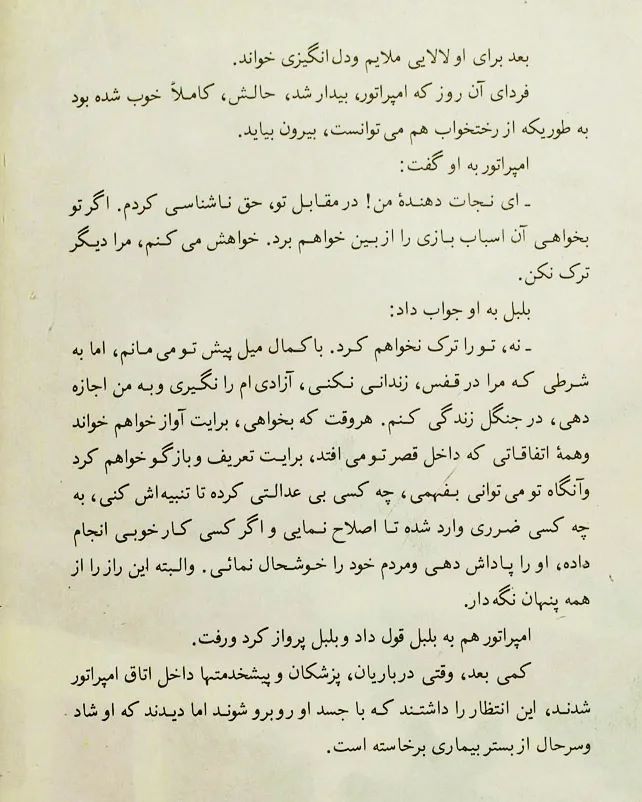 بعد برای او لالایی ملایم ودل انگیزی خواند.
فردای آن روز که امپراتور، بیدار شد، حالش، کاملاً خوب شده بود
به طوریکه از رختخواب هم می توانست، بیرون بیاید.
امپراتور به او گفت:
ـ ای نجات دهندۀ من! در مقابل تو، حق ناشناسی کردم. اگر تو
بخواهی آن اسباب بازی را از بین خواهم برد. خواهش می کنم، مرا دیگر
ترک نکن.
بلبل به او جواب داد:
ـ نه، تو را ترک نخواهم کرد. با کمال میل پیش تو می مانم، اما به
شرطی که مرا در قفس، زندانی نکنی، آزادی ام را نگیری و به من اجازه
دهی، در جنگل زندگی کنم. هروقت که بخواهی، برایت آواز خواهم خواند
وهمۀ اتفاقاتی که داخل قصر تو می افتد، برایت تعریف و بازگو خواهم کرد
وآنگاه تو می توانی بفهمی، چه کسی بی عدالتی کرده تا تنبیه اش کنی، به
چه کسی ضرری وارد شده تا اصلاح نمایی و اگر کسی کار خوبی انجام
داده، او را پاداش دهی ومردم خود را خوشحال نمائی. والبته این راز را از
همه پنهان نگه دار.
امپراتور هم به بلبل قول داد و بلبل پرواز کرد ورفت.
کمی بعد، وقتی درباریان، پزشکان و پیشخدمتها داخل اتاق امپراتور
شدند، این انتظار را داشتند که با جسد او روبرو شوند اما دیدند که او شاد
وسرحال از بستر بیماری برخاسته است.